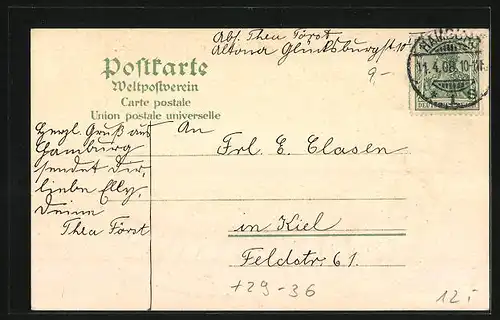 Abs. Thea Först.
Altona Glücksburgst 10
HAMBURG
11.4.08.10-11
9,-
Postkarte
Weltpostverein
Carte postale
Union postale universelle
An
Herzl. Gruß aus
Hamburg
sendet Dir,
liebe Elly,
Deine
Thea Först
Frl. E. Clasen
in Kiel
Feldstr. 61.
+29-36
12.-